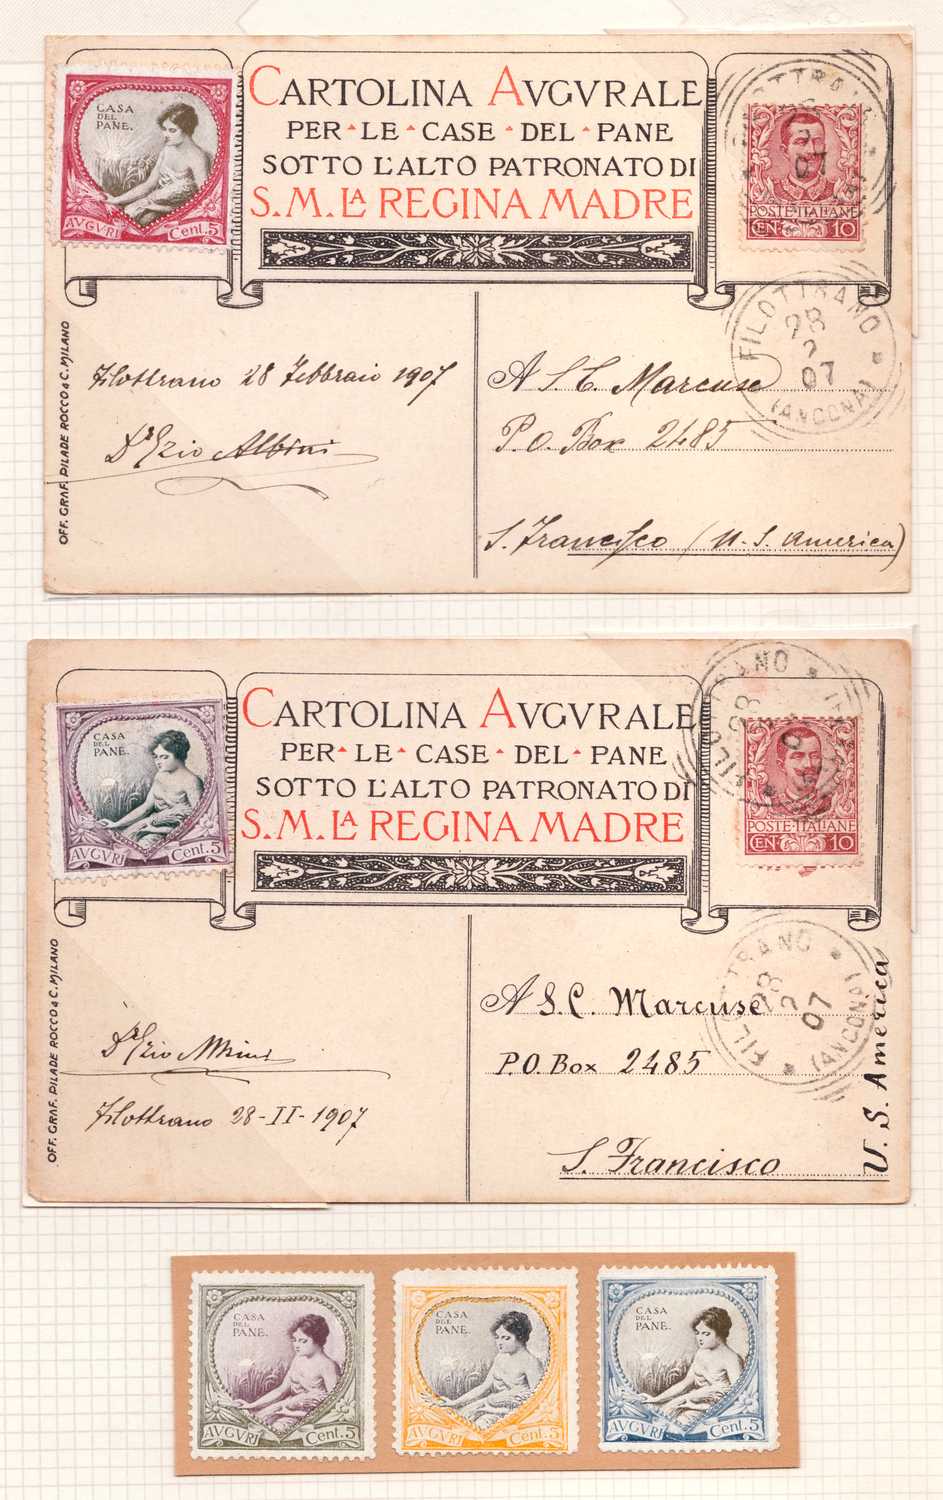 CASA
DEL
PANE.
AVGVRI Cent. 5
CARTOLINA AVGVRALE
PER · LE · CASE · DEL · PANE
SOTTO L'ALTO PATRONATO DI
S. M. LA REGINA MADRE
POSTE·ITALIANE
CEN. 10
07
FILOTTRANO
28
2
07
(ANCONA)
OFF. GRAF. PILADE ROCCO & C. MILANO
Filottrano 28 Febbraio 1907
Dr Ezio Albini
A S. C. Marcuse
P. O. Box 2485
S. Francisco (U. S. America)
CASA
DEL
PANE.
AVGVRI Cent. 5
CARTOLINA AVGVRALE
PER · LE · CASE · DEL · PANE
SOTTO L'ALTO PATRONATO DI
S. M. LA REGINA MADRE
POSTE·ITALIANE
CEN. 10
FILOTTRANO
28
2
07
(ANCONA)
OFF. GRAF. PILADE ROCCO & C. MILANO
Dr Ezio Albini
Filottrano 28-II-1907
A S. C. Marcuse
P. O. Box 2485
S. Francisco
U. S. America
CASA
DEL
PANE.
AVGVRI Cent. 5
CASA
DEL
PANE.
AVGVRI Cent. 5
CASA
DEL
PANE.
AVGVRI Cent. 5